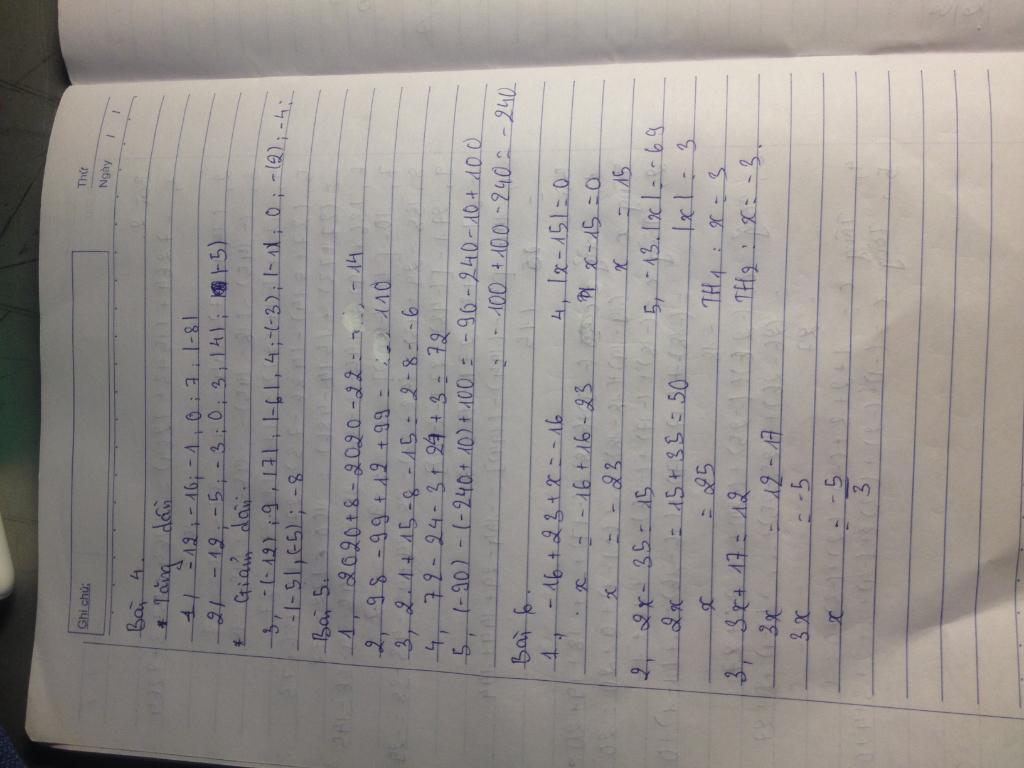 Thứ
Ngày / /
Ghi chú:
Bài 4.
* Tăng dần
1/ -12; -10; -1; 0; 7; |-8|
2/ -12; -5; -3; 0; 3; |4|; |-5|
* Giảm dần.
3, -(-12); 9; |7|; |-6|; 4; -(-3); |-1|; 0; -(2); -4;
-|-5|; (-5); -8
Bài 5.
1, 2020+8-2020-22 = -14
2, 98-99+12+99 = 110
3, 2.1+15-8-15 = 2-8 = -6
4, 72-24-3+24+3 = 72
5, (-90)-(-240+10)+100 = -96-240-10+100
= -100+100-240 = -240
Bài 6.
1, -16+23+x = -16
x = -16+16-23
x = -23
2, 2x-35 = 15
2x = 15+35 = 50
x = 25
3, 3x+17 = 12
3x = 12-17
3x = -5
x = -5/3
4, |x-15| = 0
x-15 = 0
x = 15
5, -13.|x| = -69
|x| = 3
TH1: x = 3
TH2: x = -3.